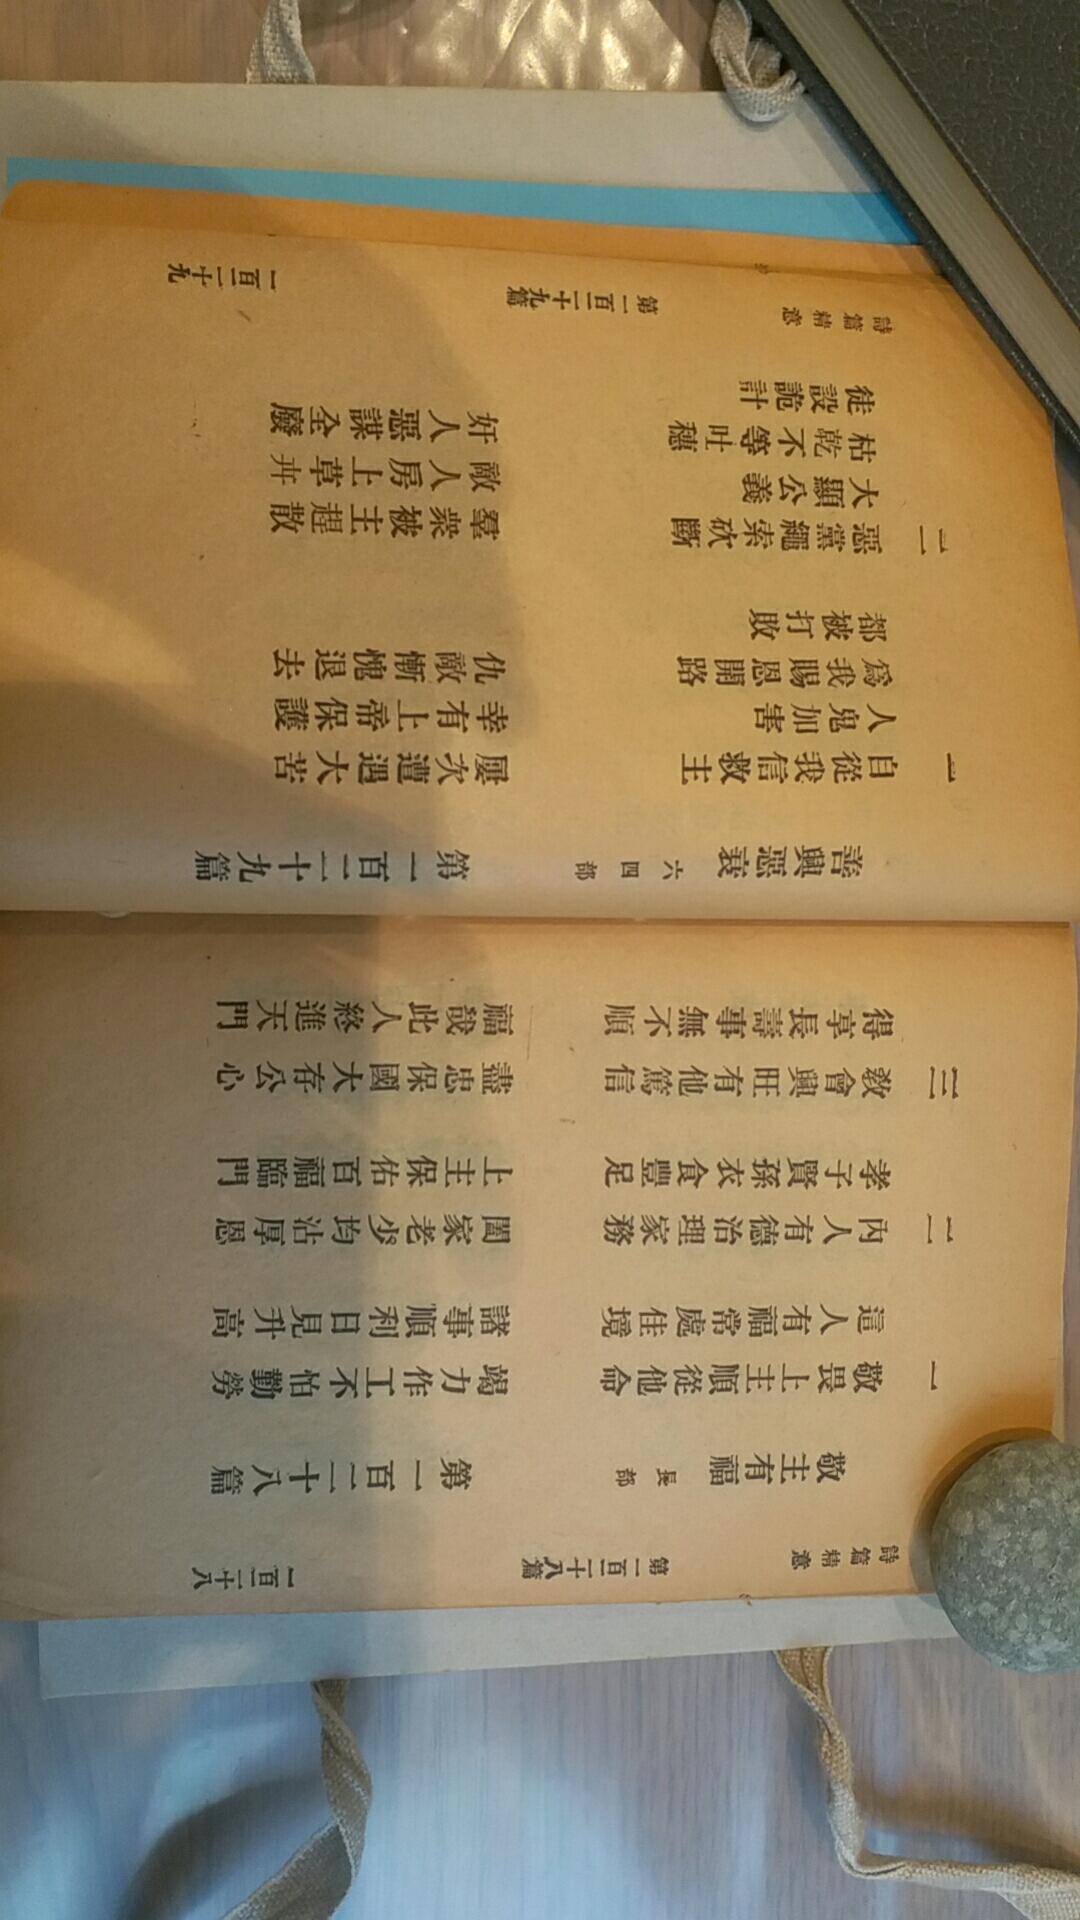 詩篇精意 第一百二十八篇 一百二十八
敬主有福 長部 第一百二十八篇
一 敬畏上主順從他命 竭力作工不怕勤勞
這人有福常處佳境 諸事順利日見升高
二 內人有德治理家務 闔家老少均沾厚恩
孝子賢孫衣食豐足 上主保佑百福臨門
三 教會興旺有他篤信 盡忠保國大存公心
得享長壽事無不順 福哉此人終進天門
善興惡衰 六四部 第一百二十九篇
一 自從我信救主 屢次遭遇大苦
人鬼加害 幸有上帝保護
爲我賜恩開路 仇敵慚愧退去
都被打敗
二 惡黨繩索砍斷 羣衆被主趕散
大顯公義 敵人房上草卉
枯乾不等吐穗 奸人惡謀全廢
徒設詭計
詩篇精意 第一百二十九篇 一百二十九